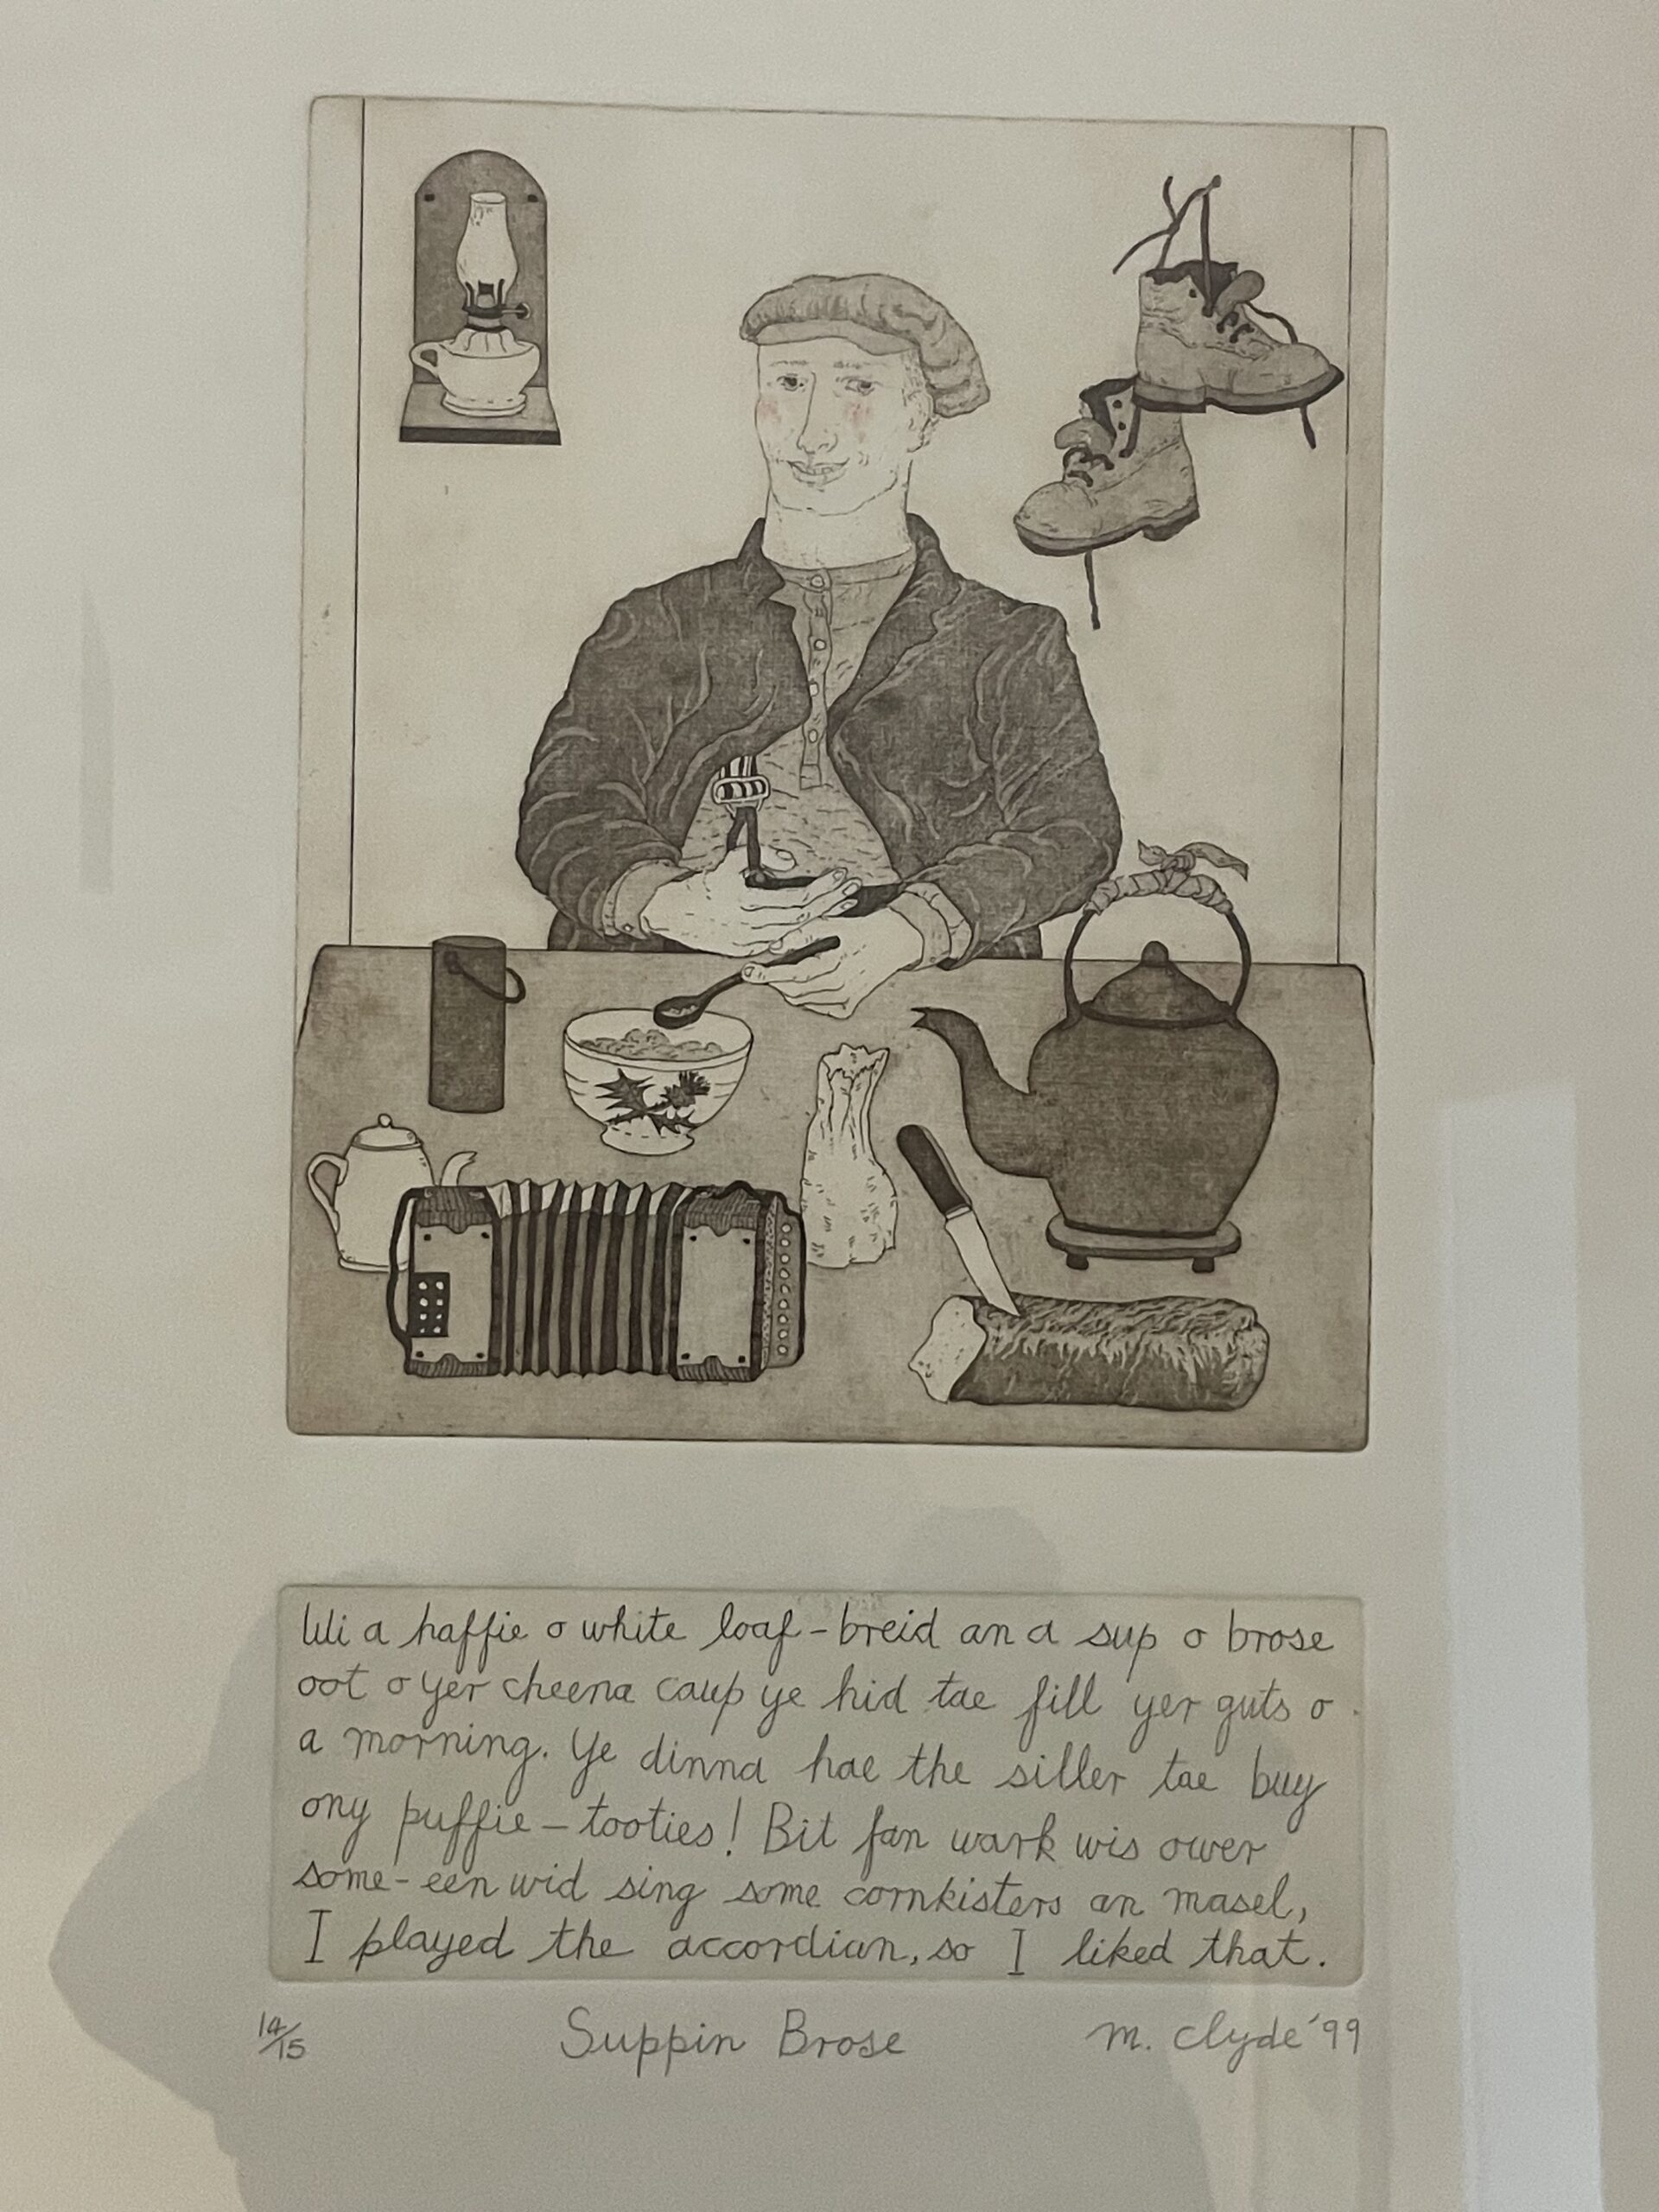 Wi a haffie o white loaf-breid an a sup o brose
oot o yer cheena caup ye hid tae fill yer guts o
a morning. Ye dinna hae the siller tae buy
ony puffie-tooties! Bit fan wark wis ower
some-een wid sing some cornkisters an masel,
I played the accordian, so I liked that.
14/15 Suppin Brose M. Clyde '99